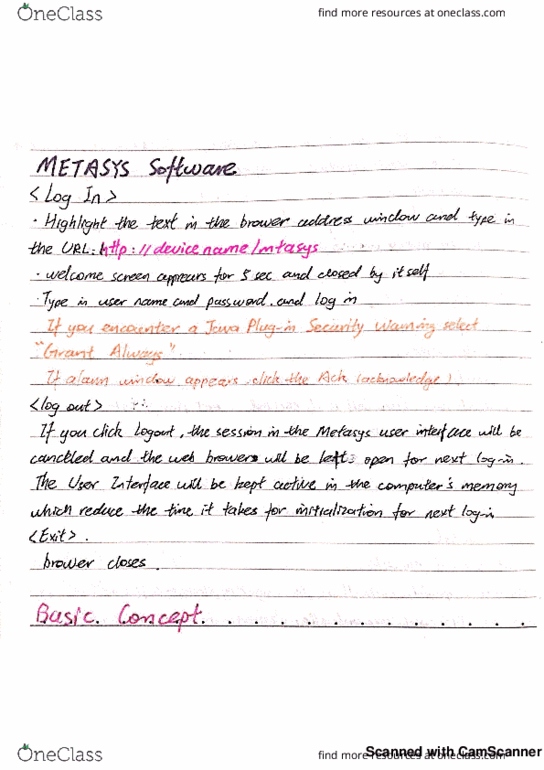 OneClass
find more resources at oneclass.com
METASYS Software
<Log In>
· Highlight the text in the brower address window and type in
the URL: http://device name/mtasys
· welcome screen appears for 5 sec and closed by itself
· Type in user name and password. and log in
If you encounter a Java Plug-in Security Warning select
"Grant Always".
If alarm window appears. click the Ack (acknowledge)
<log out>
If you click Logout, the session in the Metasys user interface will be
canclled and the web browers will be left open for next log-in.
The User Interface will be kept active in the computer's memory
which reduce the time it takes for initialization for next log-in
<Exit>.
brower closes.
Basic. Concept. . . . . . . . . . . . .
OneClass
find more resources at oneclass.com
Scanned with CamScanner